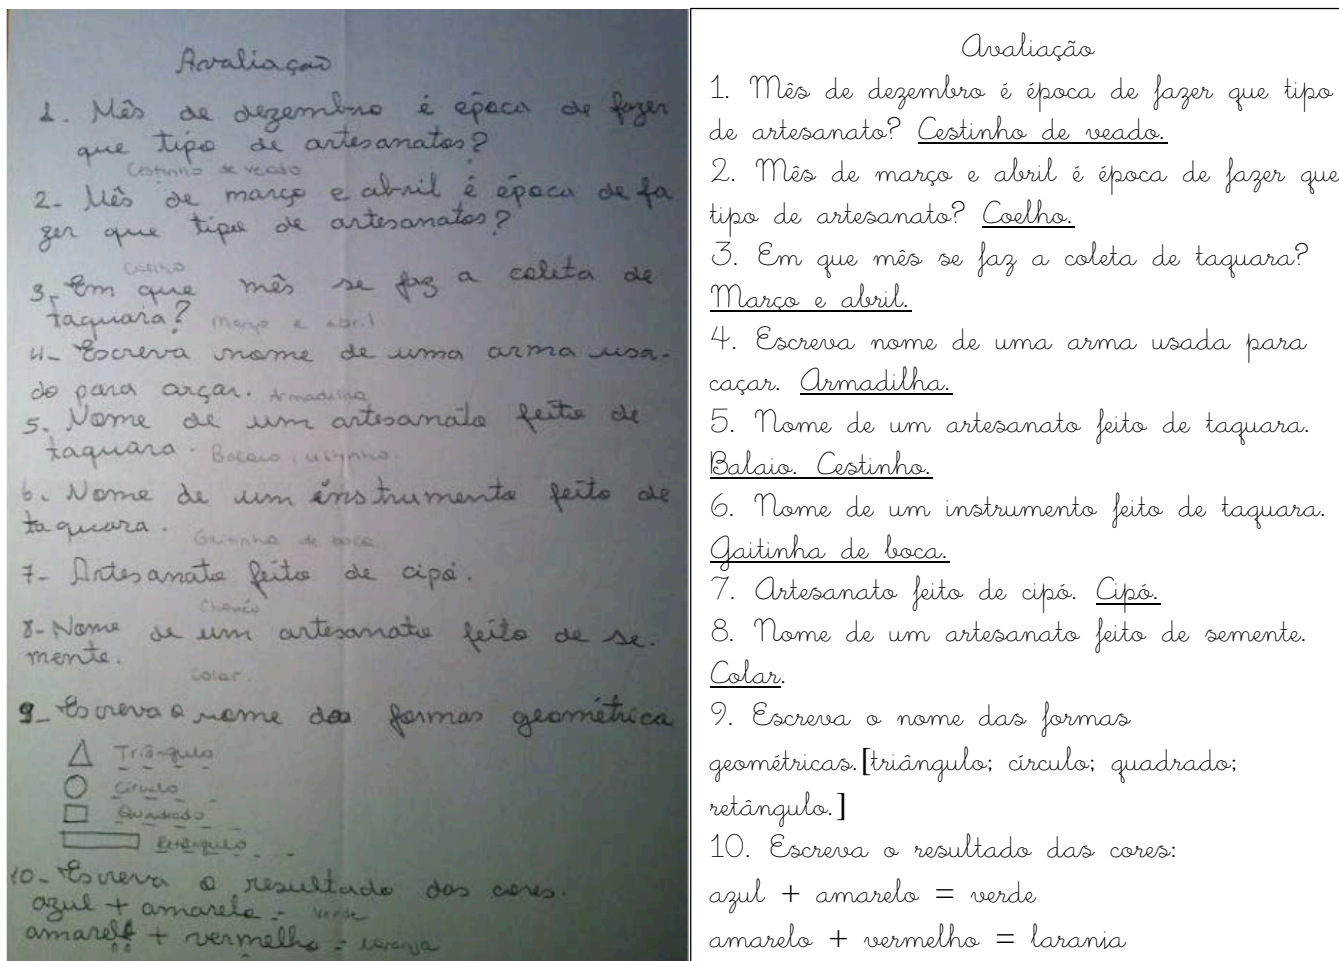 Avaliação
1. Mês de dezembro é época de fazer
que tipo de artesanatos?
Cestinho de veado
2- Mês de março e abril é época de fa
zer que tipo de artesanatos?
Coelho
3- Em que mês se faz a coleta de
taquara? Março e abril
4- Escreva nome de uma arma usa-
do para arçar. Armadilha
5- Nome de um artesanato feito de
taquara. Balaio, cestinho.
6. Nome de um instrumento feito de
taquara.
Gaitinha de boca.
7- Artesanato feito de cipó.
8- Nome de um artesanato feito de se.
mente.
Colar.
9- Escreva o nome das formas geométrica
Triângulo
Círculo
Quadrado
Retângulo
10- Escreva o resultado das cores.
azul + amarelo = verde
amarelo + vermelho = laranja
Avaliação
1. Mês de dezembro é época de fazer que tipo
de artesanato? Cestinho de veado.
2. Mês de março e abril é época de fazer que
tipo de artesanato? Coelho.
3. Em que mês se faz a coleta de taquara?
Março e abril.
4. Escreva nome de uma arma usada para
caçar. Armadilha.
5. Nome de um artesanato feito de taquara.
Balaio. Cestinho.
6. Nome de um instrumento feito de taquara.
Gaitinha de boca.
7. Artesanato feito de cipó. Cipó.
8. Nome de um artesanato feito de semente.
Colar.
9. Escreva o nome das formas
geométricas.[triângulo; círculo; quadrado;
retângulo.]
10. Escreva o resultado das cores:
azul + amarelo = verde
amarelo + vermelho = laranja